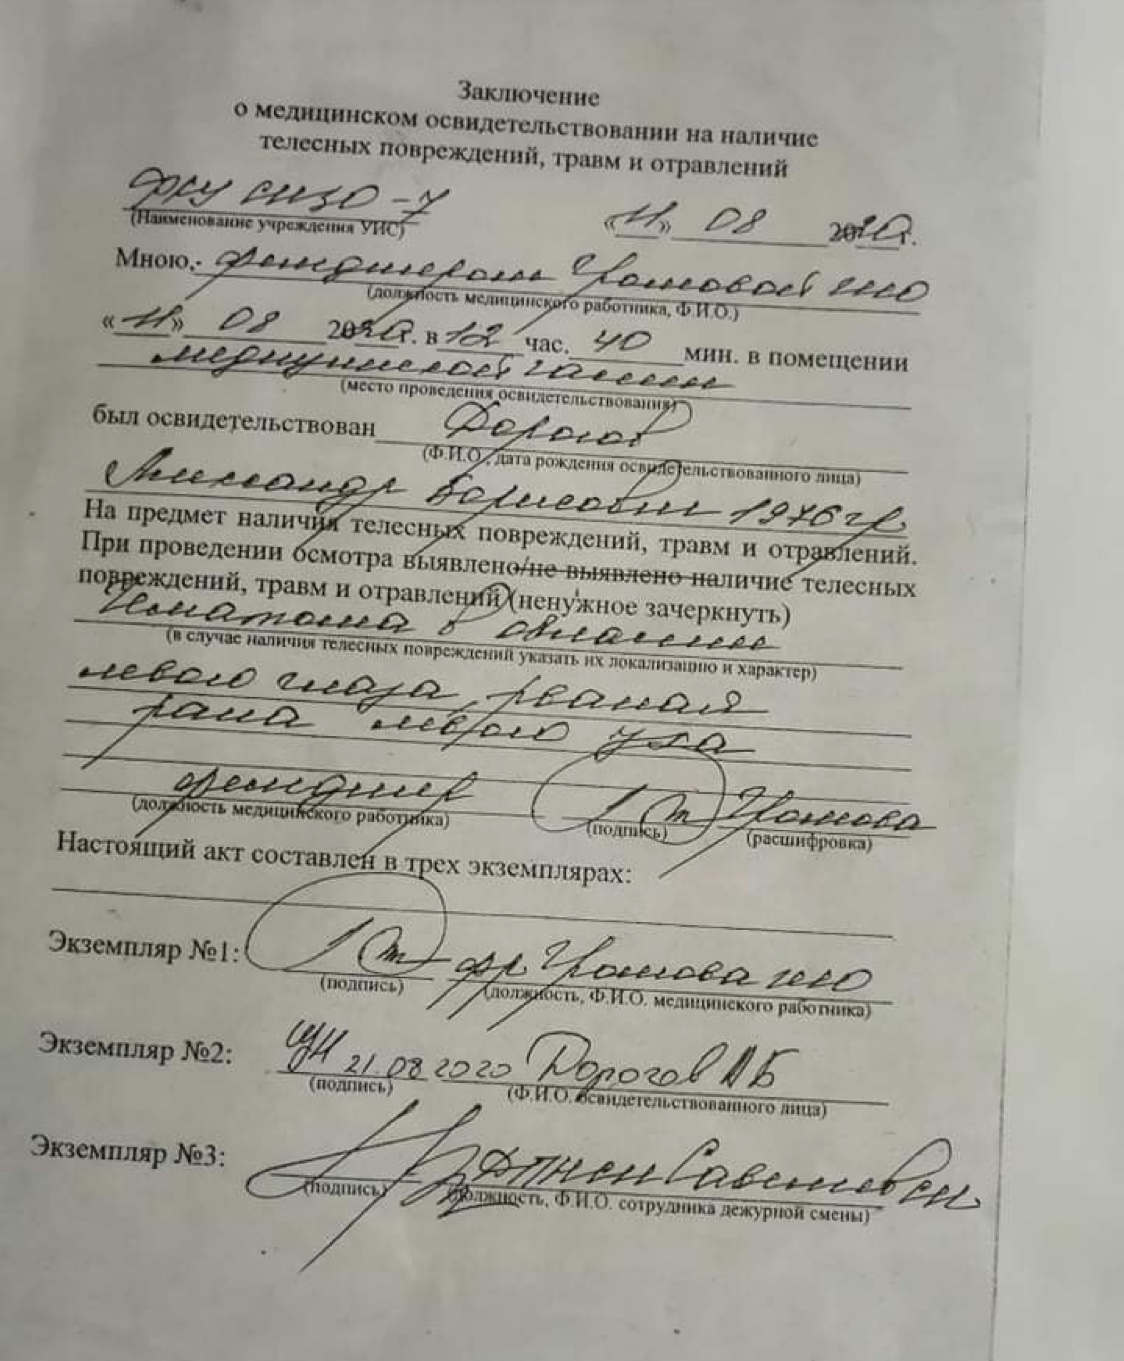 Заключение
о медицинском освидетельствовании на наличие
телесных повреждений, травм и отравлений
ФКУ СИЗО-7
(Наименование учреждения УИС)
«11» 08 2020г.
Мною, фельдшером Громовой
(должность медицинского работника, Ф.И.О.)
«11» 08 2020г. в 12 час. 40 мин. в помещении
медицинской части
(место проведения освидетельствования)
был освидетельствован Дорогов
(Ф.И.О., дата рождения освидетельствованного лица)
Александр Борисович 1976 гр
На предмет наличия телесных повреждений, травм и отравлений.
При проведении осмотра выявлено/не выявлено наличие телесных
повреждений, травм и отравлений (ненужное зачеркнуть)
Гематома в области
(в случае наличия телесных повреждений указать их локализацию и характер)
левого глаза, рваная
рана левого уха
фельдшер Громова
(должность медицинского работника) (подпись) (расшифровка)
Настоящий акт составлен в трех экземплярах:
Экземпляр №1: фр Громова
(подпись) (должность, Ф.И.О. медицинского работника)
Экземпляр №2: 21.08 2020 Дорогов А Б
(подпись) (Ф.И.О. освидетельствованного лица)
Экземпляр №3: ДПНСИ
(подпись) (должность, Ф.И.О. сотрудника дежурной смены)